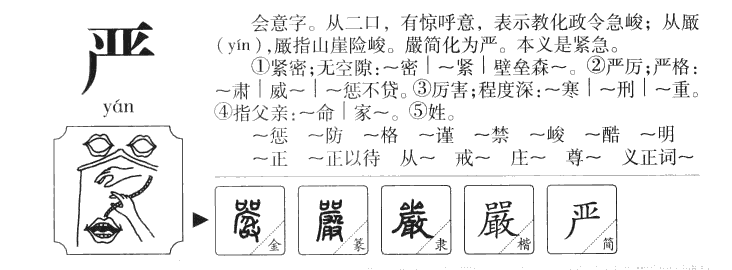 严
yán
会意字。从二口，有惊呼意，表示教化政令急峻；从厰
(yín)，厰指山崖险峻。嚴简化为严。本义是紧急。
①紧密；无空隙：~密｜~紧｜壁垒森~。②严厉；严格：
~肃｜威~｜~惩不贷。③厉害；程度深：~寒｜~刑｜~重。
④指父亲：~命｜家~。⑤姓。
~惩 ~防 ~格 ~谨 ~禁 ~峻 ~酷 ~明
~正 ~正以待 从~ 戒~ 庄~ 尊~ 义正词~
嚴 金 嚴 篆 嚴 隶 嚴 楷 严 简